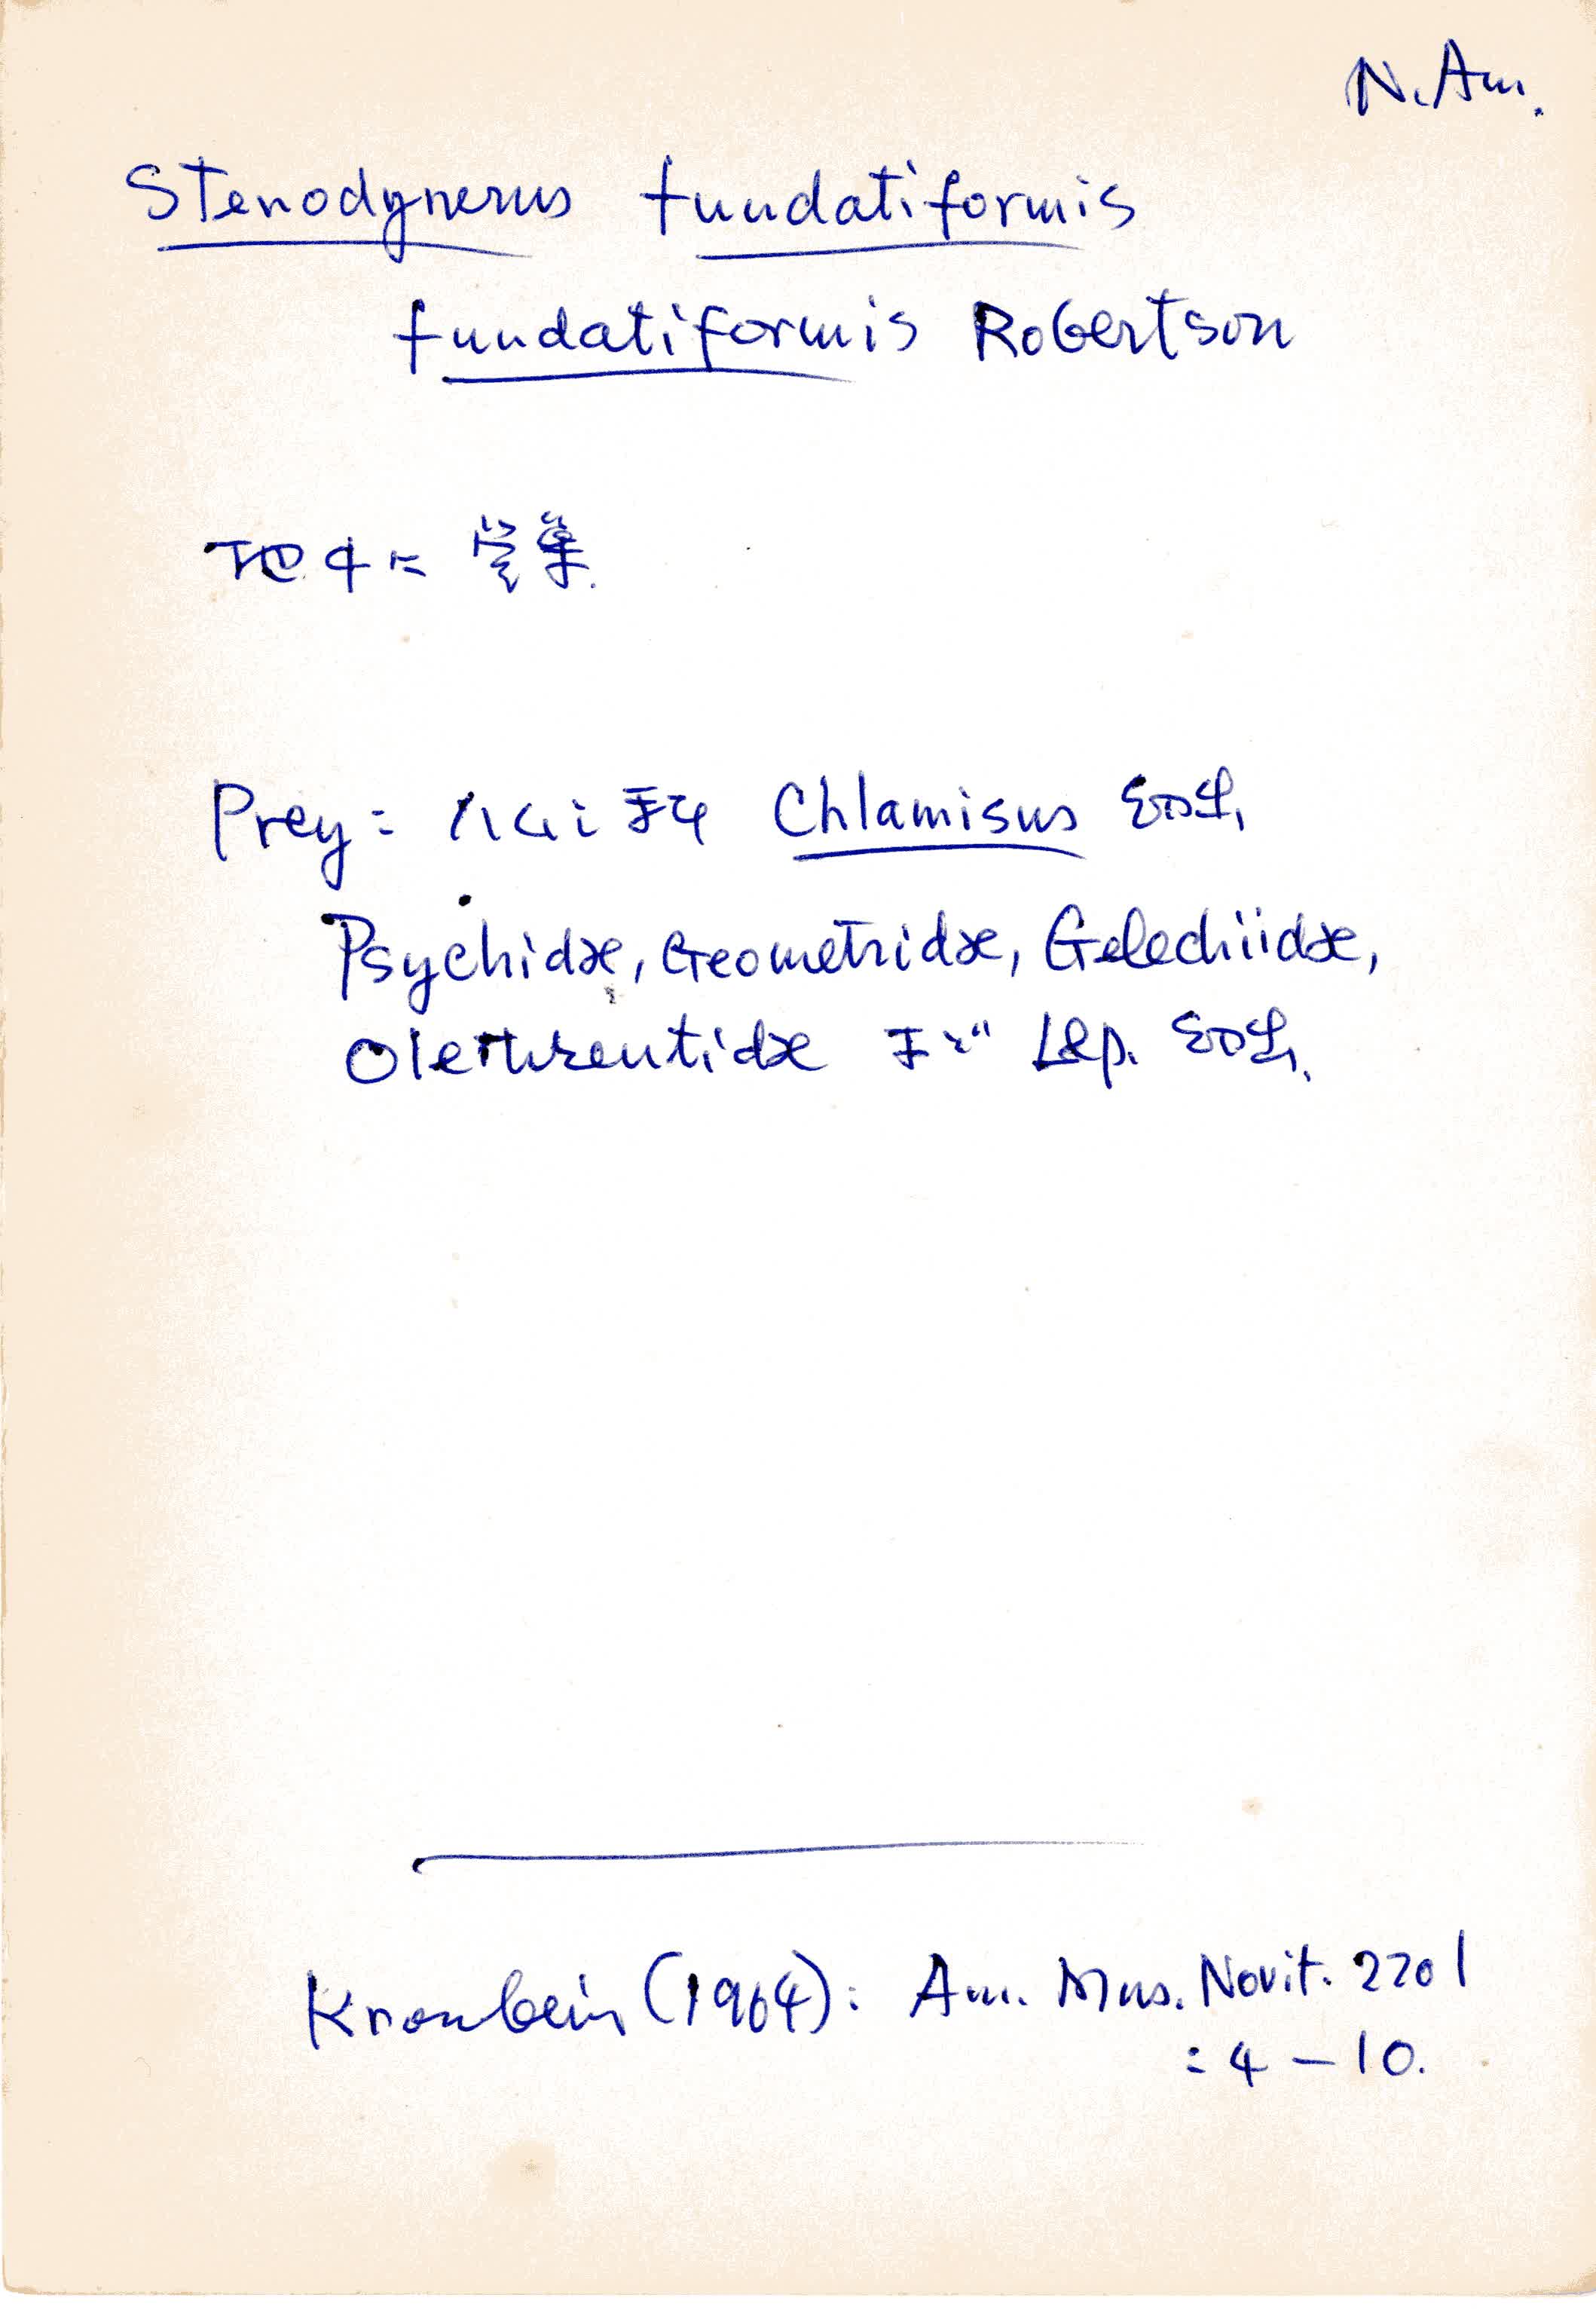 N. Am.
Stenodynerus fundatiformis
fundatiformis Robertson
地中に営巣.
Prey : ハムシ科 Chlamisus 幼虫,
Psychidae, Geometridae, Gelechiidae,
Olethreutidae など Lep. 幼虫.
Krombein (1964) : Am. Mus. Novit. 2201
: 4 – 10.